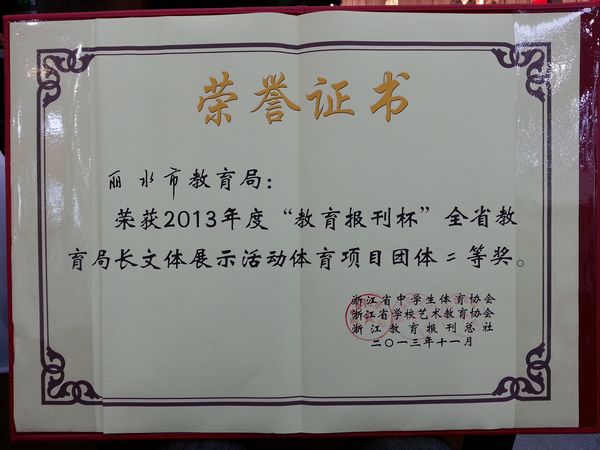 荣誉证书
丽水市教育局：
荣获2013年度“教育报刊杯”全省教
育局长文体展示活动体育项目团体二等奖。
浙江省中学生体育协会
浙江省学校艺术教育协会
浙江教育报刊总社
二〇一三年十一月